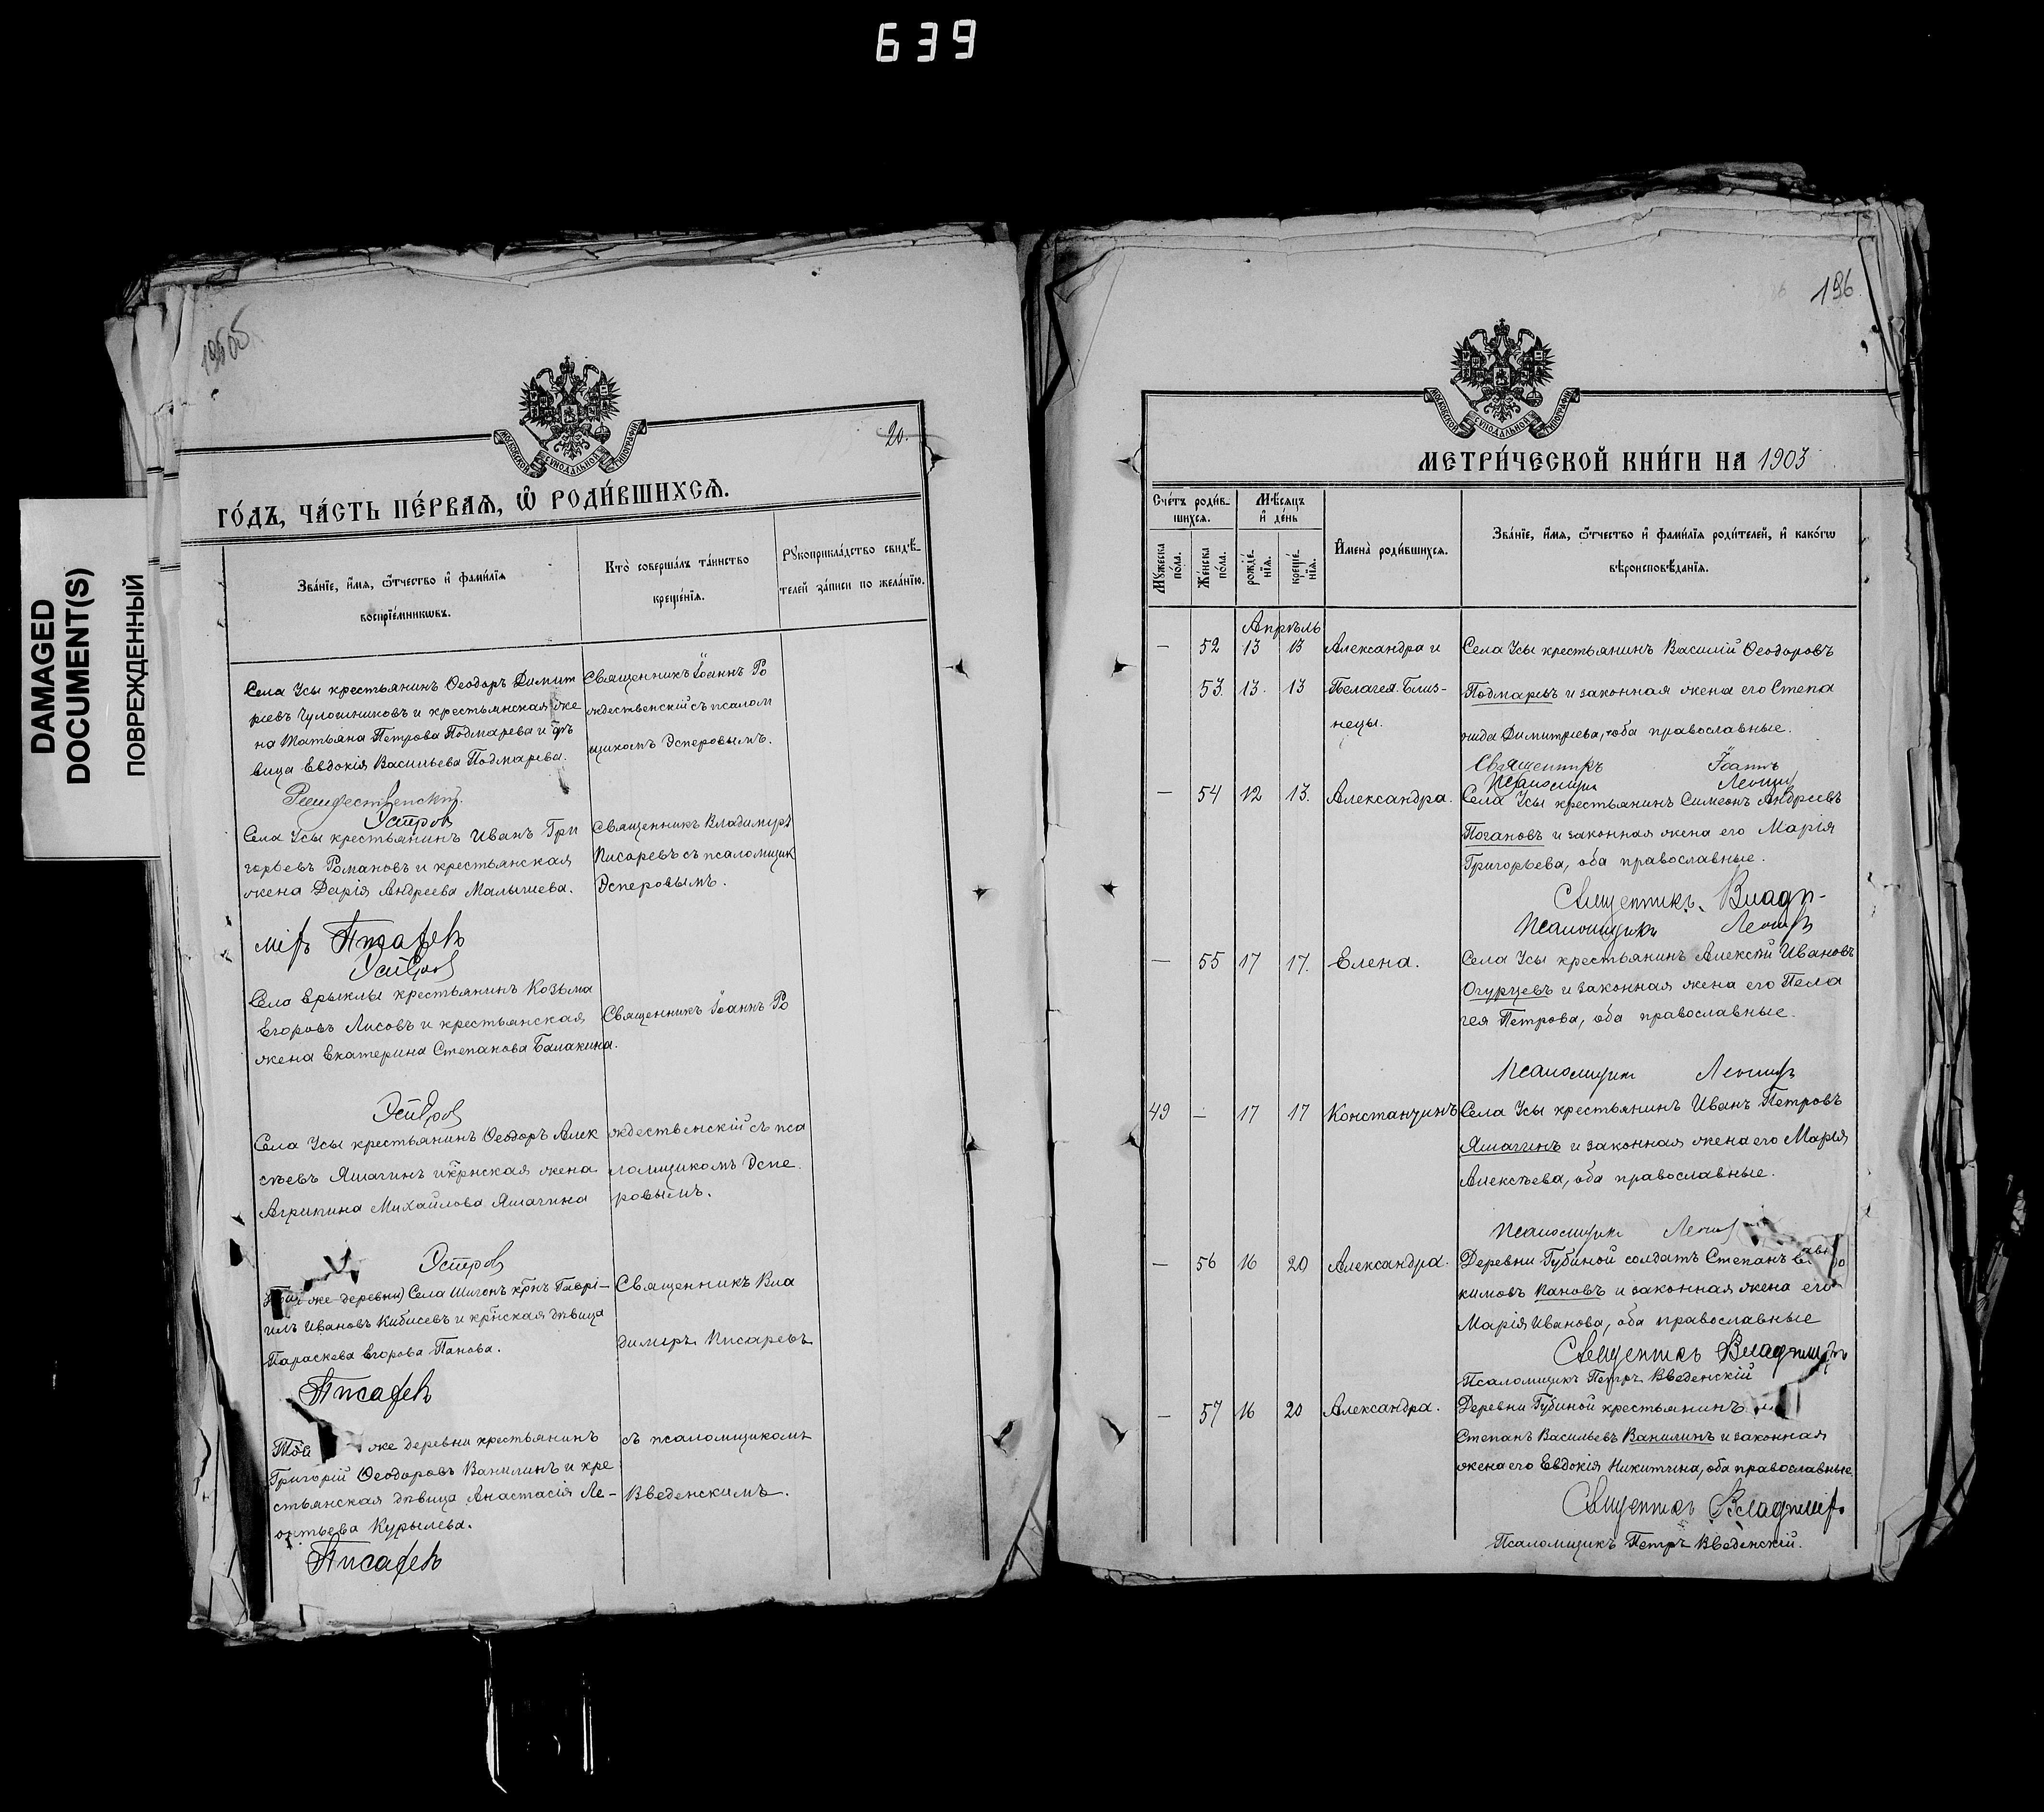 639
DAMAGED
DOCUMENT(S)
ПОВРЕЖДЕННЫЙ
20.
МОСКОВСКОЙ СѴНОДАЛЬНОЙ ТИПОГРАФІИ
ГО́ДЪ, ЧА́СТЬ ПЕ́РВАѦ, Ѡ҆ РОДИ́ВШИХСѦ.
Зва́нїе, и҆́мѧ, ѻ҆́тчество и҆ фами́лїѧ
воспрїе́мникѡвъ.
Кто̀ соверша́лъ та́инство
креще́нїѧ.
Рꙋкоприкла́дство свидѣ́-
телей за́писи по жела́нїю.
Села Усы крестьянинъ Ѳеодоръ Димит
ріевъ Чулошниковъ и крестьянская же
на Татьяна Петрова Подмарева и дѣ
вица Евдокія Васильева Подмарева.
Священникъ Іоаннъ Ро
ждественскій съ псалом
щикомъ Эсперовымъ.
Рождественскій.
Эсперов
Села Усы крестьянинъ Иванъ Гри
горьевъ Романовъ и крестьянская
жена Дарія Андреева Малышева.
Священникъ Владимиръ
Писаревъ съ псаломщик
Эсперовымъ.
міръ Писаревъ
Эсперов
Села Ерыклы крестьянинъ Козьма
Егоровъ Лисовъ и крестьянская
жена Екатерина Степанова Балакина.
Священникъ Іоаннъ Ро
Эсперов
Села Усы крестьянинъ Ѳеодоръ Алек
сѣевъ Яшагинъ и крнская жена
Агрипина Михайлова Яшагина
ждественскій съ пса
ломщикомъ Эспе
ровымъ.
Эсперов
же деревни) Села Шигонъ крнъ Гаврі-
илъ Ивановъ Кибисевъ и крнская дѣвица
Параскева Егорова Панова.
Священникъ Вла
димиръ Писаревъ
Писаревъ
Той же деревни крестьянинъ
Григорій Ѳеодоровъ Ванилинъ и кре
стьянская дѣвица Анастасія Ле-
онтьева Курылева.
съ псаломщикомъ
Введенскимъ.
Писаревъ
196
МОСКОВСКОЙ СѴНОДАЛЬНОЙ ТИПОГРАФІИ
МЕТРИ́ЧЕСКОЙ КНИ́ГИ НА 1903
Сче́тъ роди́в-
шихсѧ.
Мꙋ́жеска
по́ла.
Же́нска
по́ла.
Мѣ́сѧцъ
и҆ де́нь
рожде́-
нїѧ.
креще́-
нїѧ.
И҆мена̀ роди́вшихсѧ.
Зва́нїе, и҆́мѧ, ѻ҆́тчество и҆ фами́лїѧ роди́телей, и҆ како́гѡ
вѣроисповѣ́данїѧ.
Апрѣль
— 52 13 13 Александра и
53. 13. 13 Пелагея. Близ-
нецы.
Села Усы крестьянинъ Василій Ѳеодоровъ
Подмаревъ и законная жена его Степа
нида Димитріева, оба православные.
Священникъ Іоаннъ
Псаломщик Леонид
— 54 12 13. Александра.
Села Усы крестьянинъ Симеонъ Андреевъ
Погановъ и законная жена его Марія
Григорьева, оба православные.
Священникъ Влади-
Псаломщикъ Леонидъ
— 55 17 17. Елена.
Села Усы крестьянинъ Алексѣй Ивановъ
Огурцевъ и законная жена его Пела
гея Петрова, оба православные.
Псаломщикъ Леонидъ
49 — 17 17 Констанчинъ
Села Усы крестьянинъ Иванъ Петровъ
Яшагинъ и законная жена его Марія
Алексѣева, оба православные.
Псаломщикъ Леонид
— 56 16 20 Александра.
Деревни Губиной солдатъ Степанъ
кимовъ Пановъ и законная жена его
Марія Иванова, оба православные
Священникъ Владиміръ
Псаломщикъ Петръ Введенскій
— 57 16 20 Александра.
Деревни Губиной крестьянинъ
Степанъ Васильевъ Ванилинъ и законная
жена его Евдокія Никитина, оба православные.
Священникъ Владиміръ
Псаломщикъ Петръ Введенскій.